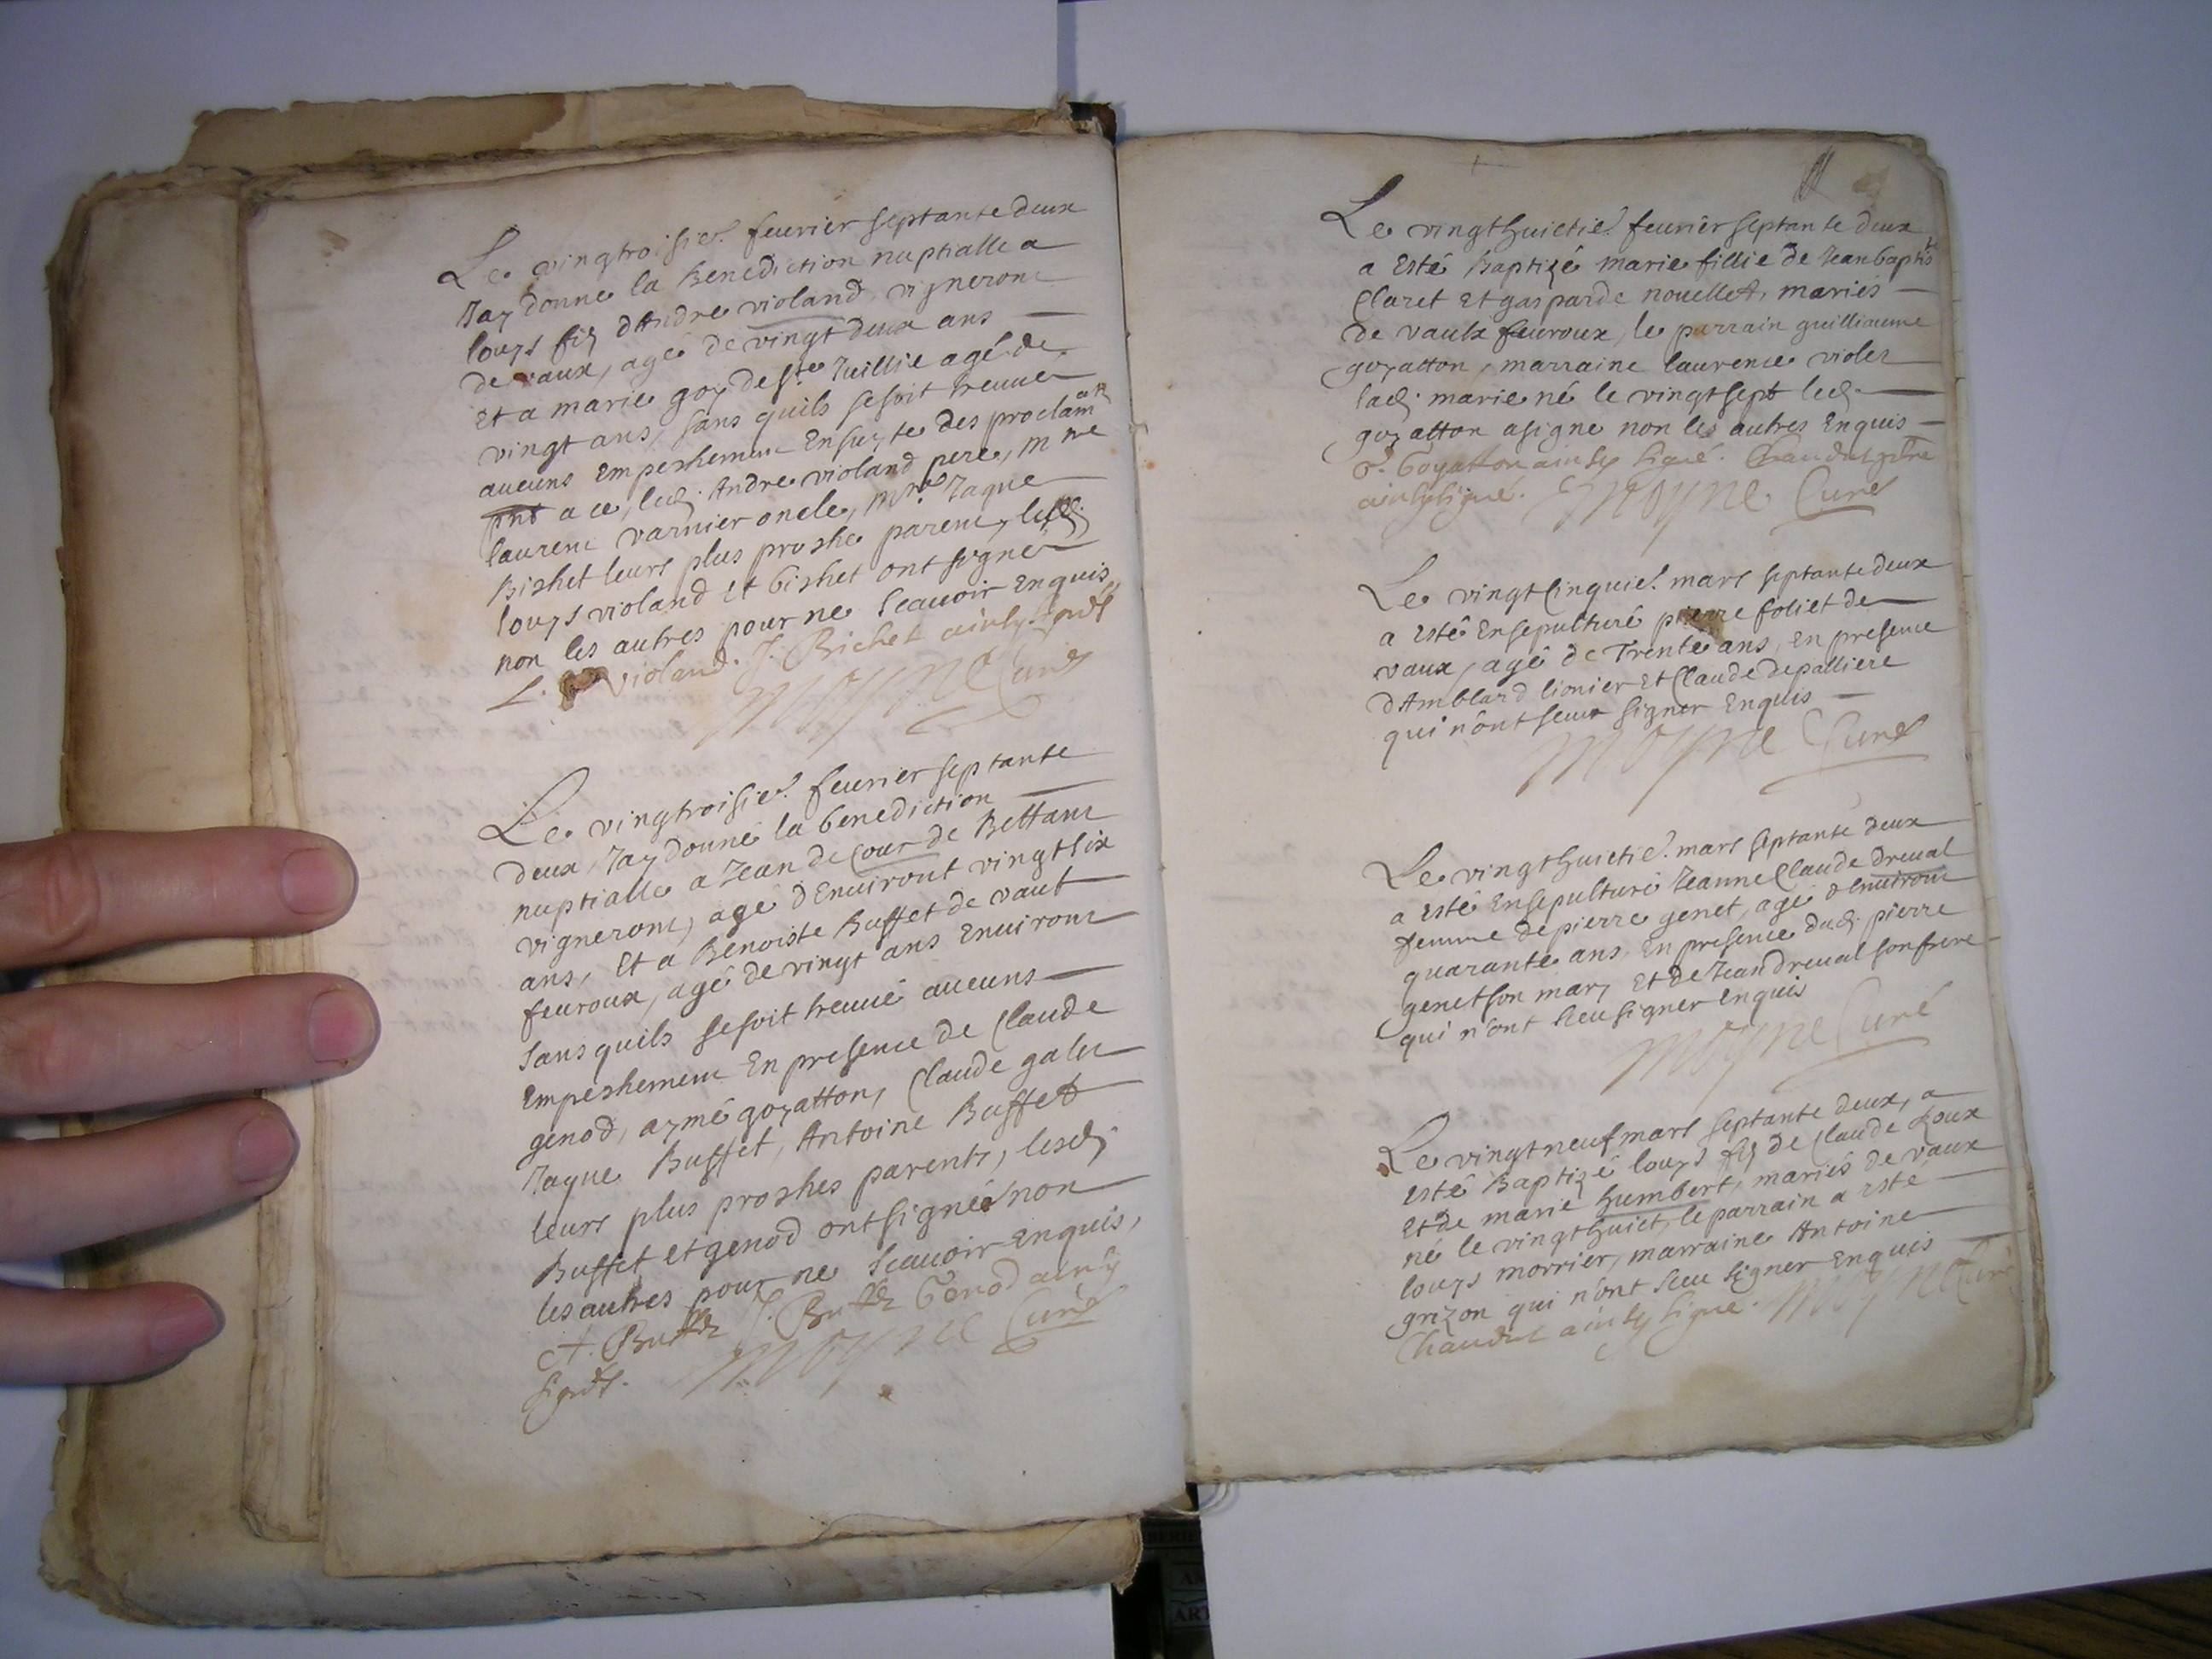 Le vingtroisie. feurier septante deux
Jay donne la Benediction nuptialle a
louys fiz dAndre violand, vigneront
de vaux, agé de vingt deux ans
Et a marie goy de Ste Juillie agé de
vingt ans, sans quils sesoit treuué
aucuns Empeshement Ensuyte des proclamaon
pnt a ce, led. Andre violand pere, mre
laurent varnier oncle, mre Jaque
Bishet leurs plus proshe parent, lesd.
louys violand et bishet ont signé
non les autres pour ne scauoir Enquis
L. violand. J. Bichet ainsy signés
Moyne Curé
Le vingtroisie. feurier septante
deux, Jay donné la benediction
nuptialle a Jean de Cour de Bettant
vigneront, agé dEnuiront vingt six
ans, Et a Benoiste Buffet de vaut
feuroux, agé de vingt ans Enuiront
sans quils sesoit treuué aucuns
Empeshement En presence de Claude
genod, aymé goyatton, Claude galet
Jaque Buffet, Antoine Buffet
leurs plus proshes parents, lesd.
Buffet et genod ont signés non
les autres pour ne scauoir Enquis,
A. Buffet J. Buffet Genod ainsy
signés. Moyne Curé
Le vingthuictie. feurier septante deux
a Esté Baptizé marie fillie de Jean baptiste
Claret Et gasparde nouellet, mariés
de vaulx feuroux, le parrain guilliaume
goyatton, marraine laurence violet
lad. marie né le vingtsept led.
goyatton a signe non les autres Enquis
G. Goyatton ainsy signé. Chaudet ptre
ainsy signé. Moyne Curé
Le vingtcinquie. mars septante deux
a Esté Ensepulturé pierre foliet de
vaux, agé de Trente ans, en presence
dAmblard lionier Et Claude depalliere
qui n'ont seut signer Enquis
Moyne Curé
Le vingthuictie. mars septante deux
a Esté Ensepulturé Jeanne Claude dreual
femme de pierre genet, agé denuiront
quarante ans, En presence dud. pierre
genet son mary Et de Jean dreual son frere
qui n'ont sceu signer Enquis
Moyne Curé
Le vingtneuf mars septante deux, a
esté Baptizé louys fiz de Claude Roux
Et de marie humbert, mariés de vaux
né le vingthuict, le parrain a esté
louys morrier, marraine Antoine
grizon qui n'ont sceu signer Enquis
Chaudet ainsy signé. Moyne Curé